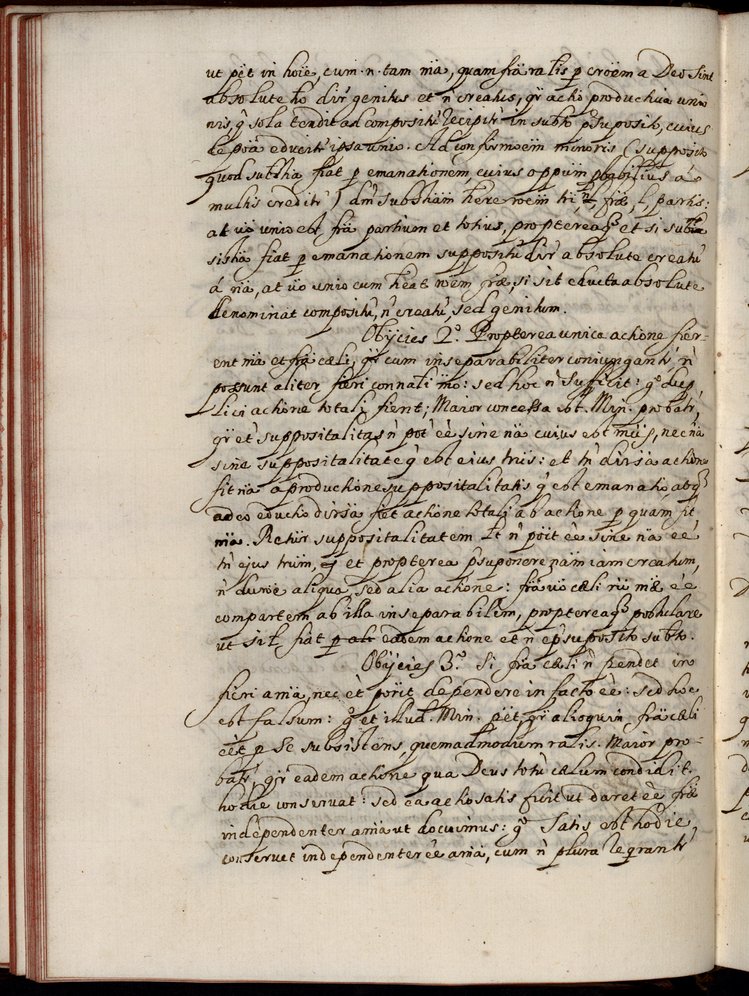 ut pět in hoïe, cum .n. tam mä, quam frä ralis p cröem a Deo sint
absolute hö dir genitus et ñ creatus, qr actio productiva unio
nis q̃ sola tendit ad compositũ recipitr in subto p̃suposito, cuius
de poä educitr ipsa unio. Ad confirmöem minoris (supposito
quod subtia fiat p emanationem, cuius oppum pbabilius á
multis creditr)
at uö unio est frä partium et totius, proptereaq̃ et si subsis
sistïa fiat p emanationem suppositũ dir absolute creatũ
á nä, at uö unio cum heat röem fräe, si sit educta absolute
denominat compositũ, ñ creatũ, sed genitum.
Obijcies 2.º Propterea unica actione fier-
ent mä et frä cæli, qr cum inseparabiliter coniungantr, ñ
possunt aliter fieri connatli mö: sed hoc ñ sufficit: gº dup
lici actïone totali fient; Maior concessa est. Min. probatr,
qr et suppositalitas ñ pot ëe sine nä cuius est nec nä
sine suppositalitate q̃ est eius trüs: et tñ divsä actïone
fit nä a productïone suppositalitatis q̃ est emanatio atq
adeo eductio divsä fiet actïone totali ab actïone p quam fit
mä. Rctur suppositalitatem Lt ñ poït ëe sine nä ëe
tñ ejus trum, et propterea p̃suponere näm iäm creatam,
ñ aliqua, sed alia actïone: frä uö cæli mæ ëe
compartem ab illa inseparabilem, proptereaq̃ postulare
ut sil fiat p̶ ̶a̶l̶t̶ eadem actïone et ñ ep̃suposito subto.
Obijcies 3.º Si frä cæli ñ pendet in
fieri a mä, nec ët poït dependere in facto ëe: sed hoc
est falsum: gº et illud. Min. pët, qr alioquin frä cæli
ëet p se subsistens, quemadmodum ralis. Maior pro-
batr, qr eadem actïone qua Deus totũ cælum condidit
hodie conservat: sed ea actio satis fuit ut daret ëe fræ
independenter a mä ut docuimus: gº satis est hodie
conservet independenter ëe a mä, cum ñ plura reqrantr